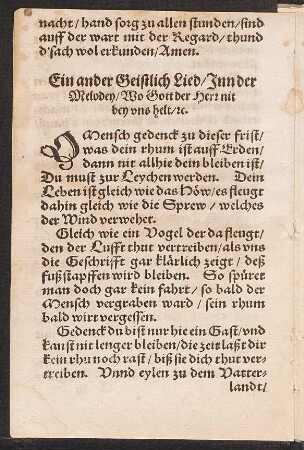 nacht/ hand sorg zu allen stunden/ sind
auff der wart mit der Regard/ thund
d'sach wol erkunden/ Amen.
Ein ander Geistlich Lied/ Inn der
Melodey/ Wo Gott der Herr nit
bey vns helt/ ꝛc.
O Mensch gedenck zu dieser frist/
was dein rhum ist auff Erden/
dann nit allhie dein bleiben ist/
Du must zur Leychen werden. Dein
Leben ist gleich wie das Höw/ es fleugt
dahin gleich wie die Sprew/ welches
der Wind verwehet.
Gleich wie ein Vogel der da fleugt/
den der Lufft thut vertreiben/ als vns
die Geschrifft gar klärlich zeigt/ deß
fußstapffen wird bleiben. So spüret
man doch gar kein fahrt/ so bald der
Mensch vergraben ward/ sein rhum
bald wirt vergessen.
Gedenck du bist nur hie ein Gast/ vnd
kanst nit lenger bleiben/ die zeit laßt dir
kein rhu noch rast/ biß sie dich thut ver-
treiben. Vnnd eylen zu dem Vatter-
landt/